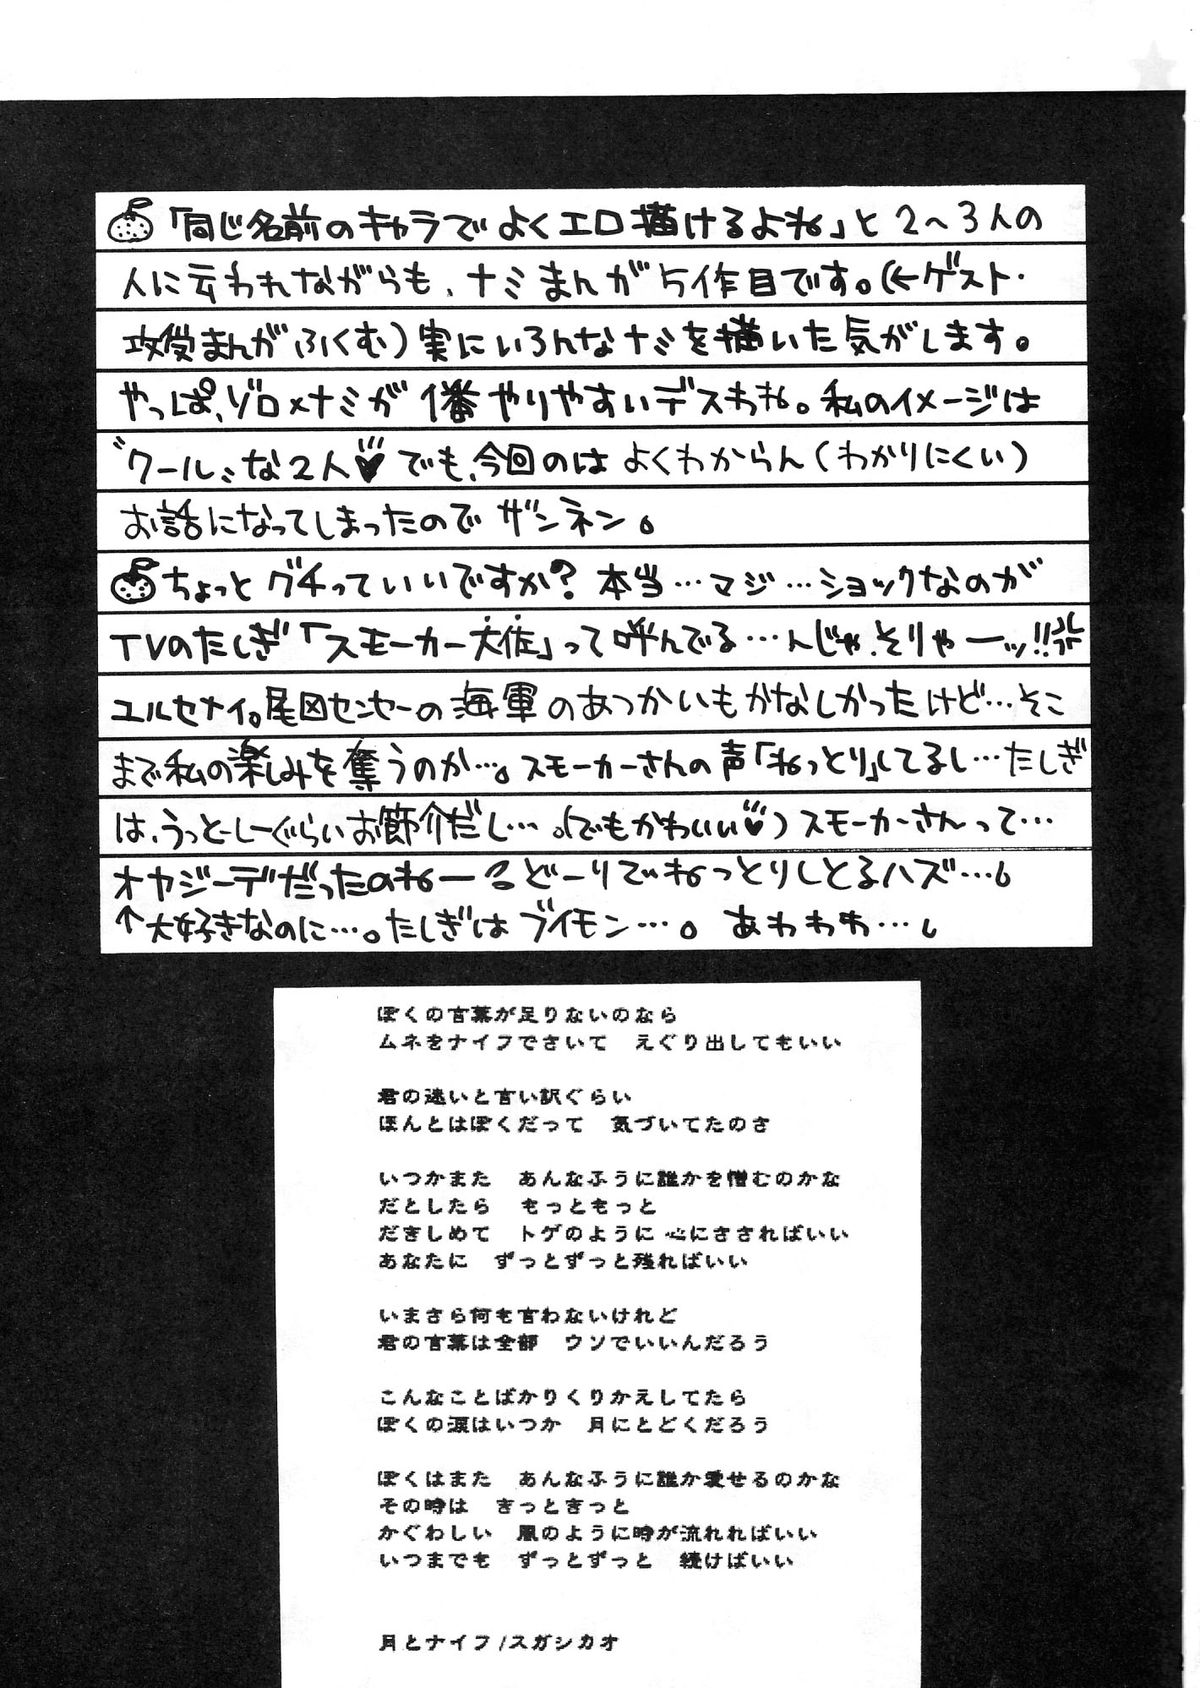 「同じ名前のキャラでよくエロ描けるよね」と2〜3人の
人に云われながらも、ナミまんが5作目です。(←ゲスト・
攻受まんがふくむ)実にいろんなナミを描いた気がします。
やっぱ、ゾロ×ナミが1番やりやすいデスわね。私のイメージは
〝クール〟な2人♥でも、今回のはよくわからん(わかりにくい)
お話になってしまったのでザンネン。
ちょっとグチっていいですか?本当…マジ…ショックなのが
TVのたしぎ「スモーカー大佐」って呼んでる…んじゃそりゃーッ!!
ユルセナイ。尾田センセーの海軍のあつかいもかなしかったけど…そこ
まで私の楽しみを奪うのか…。スモーカーさんの声「ねっとり」してるし…たしぎ
は、うっとーしーぐらいお節介だし…。(でもかわいい♥)スモーカーさんって…
オヤジーデだったのねー どーりでねっとりしとるハズ…。
↑大好きなのに…。たしぎはブイモン…。あわわわ…。
ぼくの言葉が足りないのなら
ムネをナイフでさいて　えぐり出してもいい
君の迷いと言い訳ぐらい
ほんとはぼくだって　気づいてたのさ
いつかまた　あんなふうに誰かを憎むのかな
だとしたら　もっともっと
だきしめて　トゲのように 心にささればいい
あなたに　ずっとずっと残ればいい
いまさら何も言わないけれど
君の言葉は全部　ウソでいいんだろう
こんなことばかりくりかえしてたら
ぼくの涙はいつか　月にとどくだろう
ぼくはまた　あんなふうに誰か愛せるのかな
その時は　きっときっと
かぐわしい　風のように時が流れればいい
いつまでも　ずっとずっと　続けばいい
月とナイフ/スガシカオ